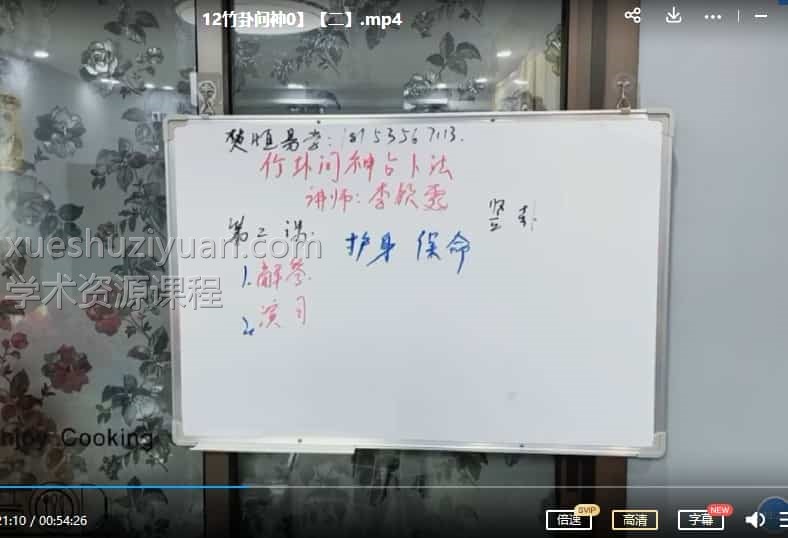 12竹卦问神0】【二】.mp4
樊恒易学：18753567113.
竹卦问神占卜法
讲师：李欣霏
竖卦
第二课.
护身 保命
1.解答.
2.演习
xueshuziyuani.com
学术资源课程
njoy Cooking
21:10 / 00:54:26
倍速
SVIP
高清
字幕
NEW